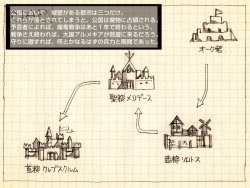 公国において、城壁がある都市は三つだけ。
これらが落とされてしまうと、公国は魔物に占領される。
予言者によれば、侵略戦争はあと1年で終わるという。
戦争さえ終われば、大国アルメキアが救援に来るだろう。
守りに徹すれば、何とかなるはずの兵力と期間であった
オーク砦
聖都 メリデース
古都 ソロトス
首都 クルプスクルム